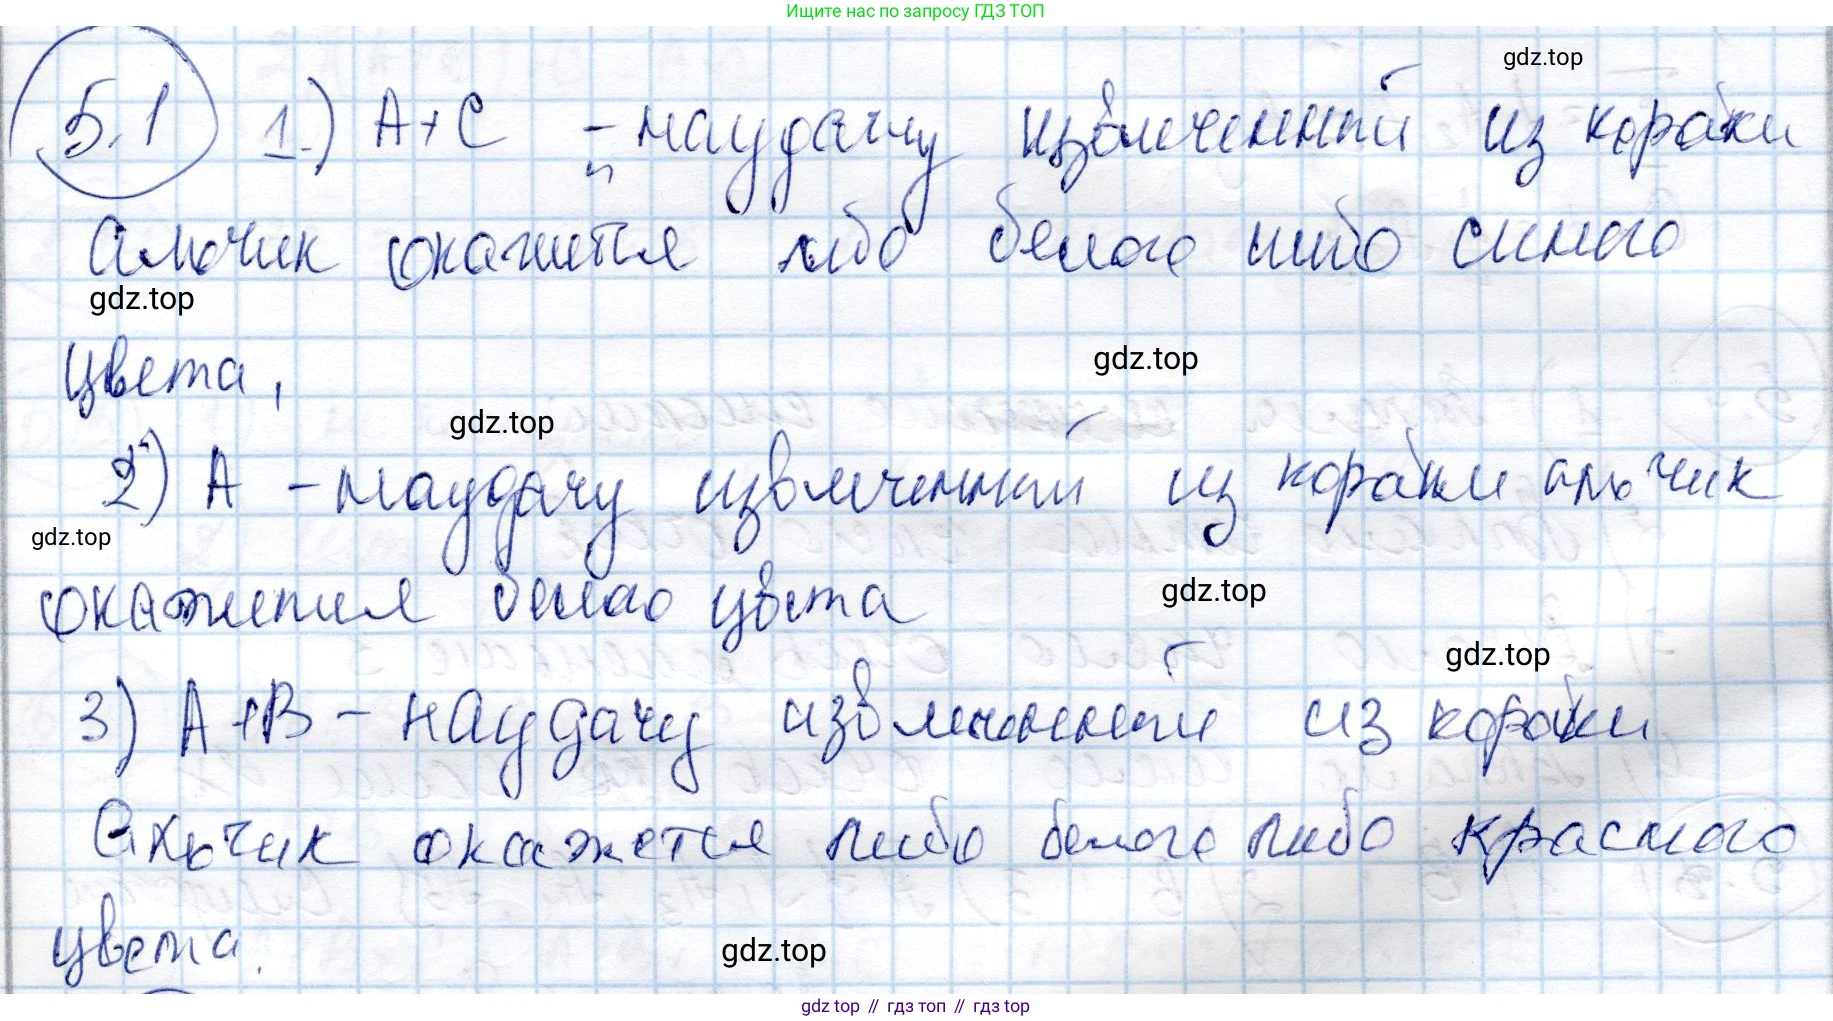 Ищите нас по запросу ГДЗ ТОП
gdz.top
5.1 1.) A+C - наудачу извлеченный из коробки
мячик окажется либо белого либо синего
gdz.top
цвета,
gdz.top
gdz.top
2) A - наудачу извлеченный из коробки мячик
gdz.top
окажется белого цвета
gdz.top
gdz.top
3) A+B - наудачу извлеченный из коробки
мячик окажется либо белого либо красного
цвета.
gdz.top
gdz top // гдз топ // гдз top